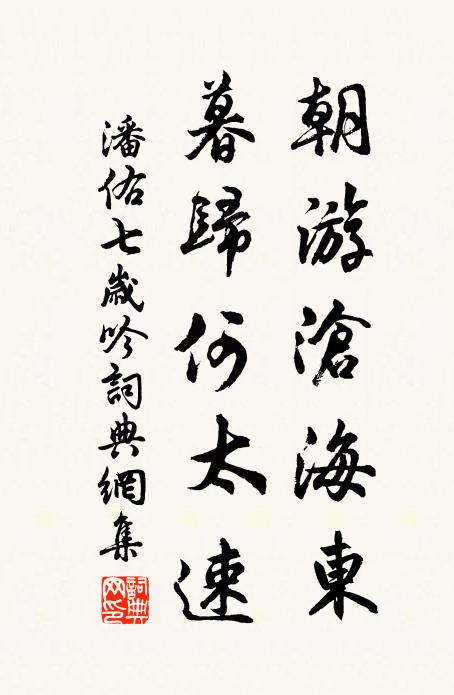 朝游滄海東
暮歸何太速
潘佑七歲吟詞典網集
詞典网印